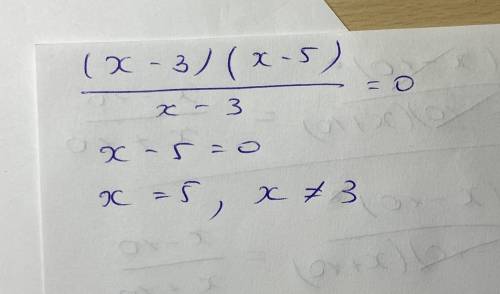 (x - 3)(x - 5) / x - 3 = 0
x - 5 = 0
x = 5, x ≠ 3